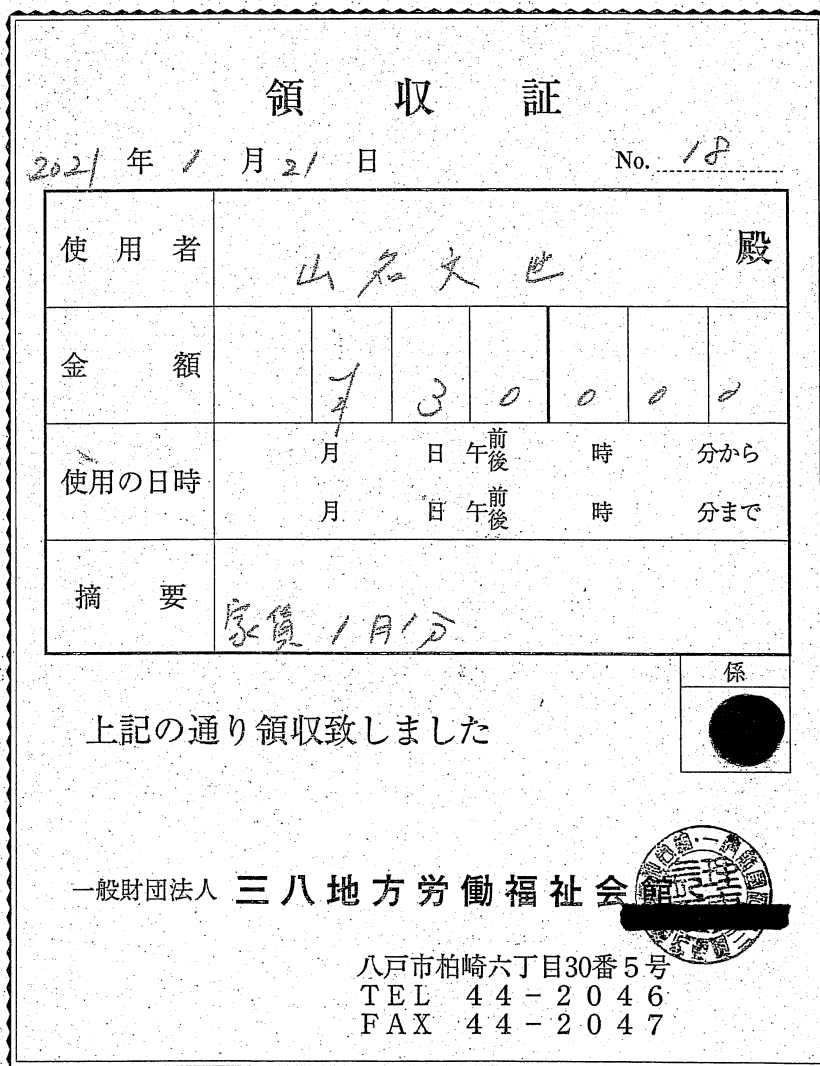 領収証
2021年1月21日 No. 18
使用者 山名文世 殿
金額 ¥30000
使用の日時 月 日 午前後 時 分から
月 日 午前後 時 分まで
摘要 家賃1月分
係
上記の通り領収致しました
一般財団法人 三八地方労働福祉会館
八戸市柏崎六丁目30番5号
TEL 44-2046
FAX 44-2047